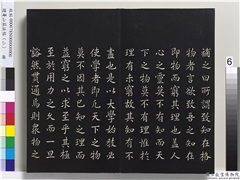 補之曰所謂致知在格
物者言欲致吾之知在
即物而窮其理也蓋人
心之靈莫不有知而天
下之物莫不有理惟於
理有未窮故其知有不
盡也是以大學始教必
使學者即凡天下之物
莫不因其已知之理而
益窮之以求至乎其極
至於用力之久而一旦
豁然貫通焉則衆物之
6